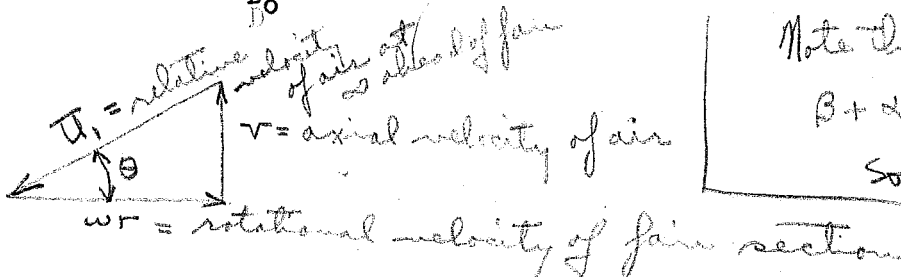 U₁ = relative velocity
of air at
∞ ahead of fan
v = axial velocity of air
θ
ωr = rotational velocity of fan section
Note th
β + α
So